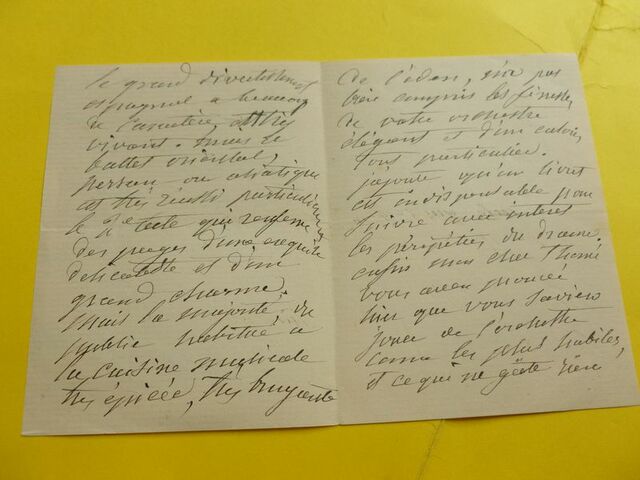 le grand divertissement
espagnol a beaucoup
de caractère, est très
vivant. mais le
ballet oriental,
persan ou asiatique
est très réussi particulièrement
le 2e texte qui renferme
des pages d'une exquise
délicatesse et d'un
grand charme.
mais la majorité, du
public habitué à
la cuisine musicale
très épicée, très bruyante
de l'éden, n'a pas
bien compris les finesses
de votre orchestre
élégant et d'un coloris
tout particulier.
j'ajoute qu'un livret
est indispensable pour
suivre avec intérêt
les péripéties du drame.
enfin mon cher Thomé
vous avez prouvé
hier que vous saviez
jouer de l'orchestre
comme les plus habiles,
et ce qui ne gâte rien,